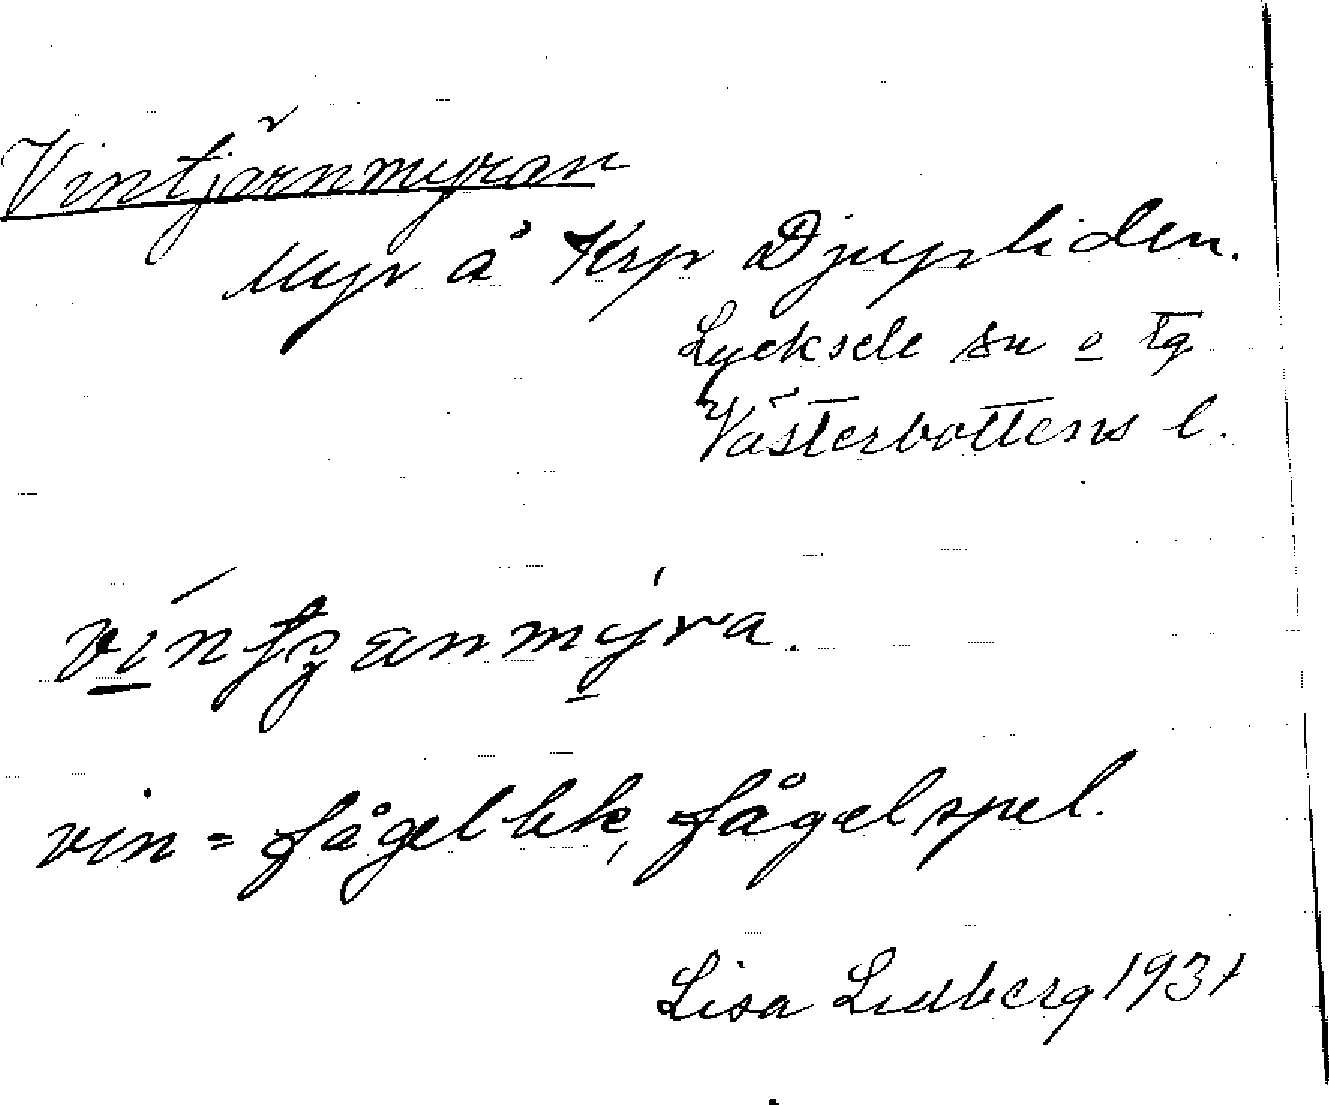 Vintjärnmyran
Myr å Krp Djupliden.
Lycksele sn o tg
Västerbottens l.
vin = fågellek, fågelspel.
Lisa Lidberg 1931